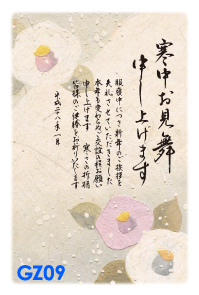 寒中お見舞
申し上げます
服喪中につき新年のご挨拶を
失礼させていただきました
本年も変わらぬご交誼の程お願い
申し上げます 寒さの折柄
皆様のご健勝をお祈りいたします
平成二八年一月
GZ09